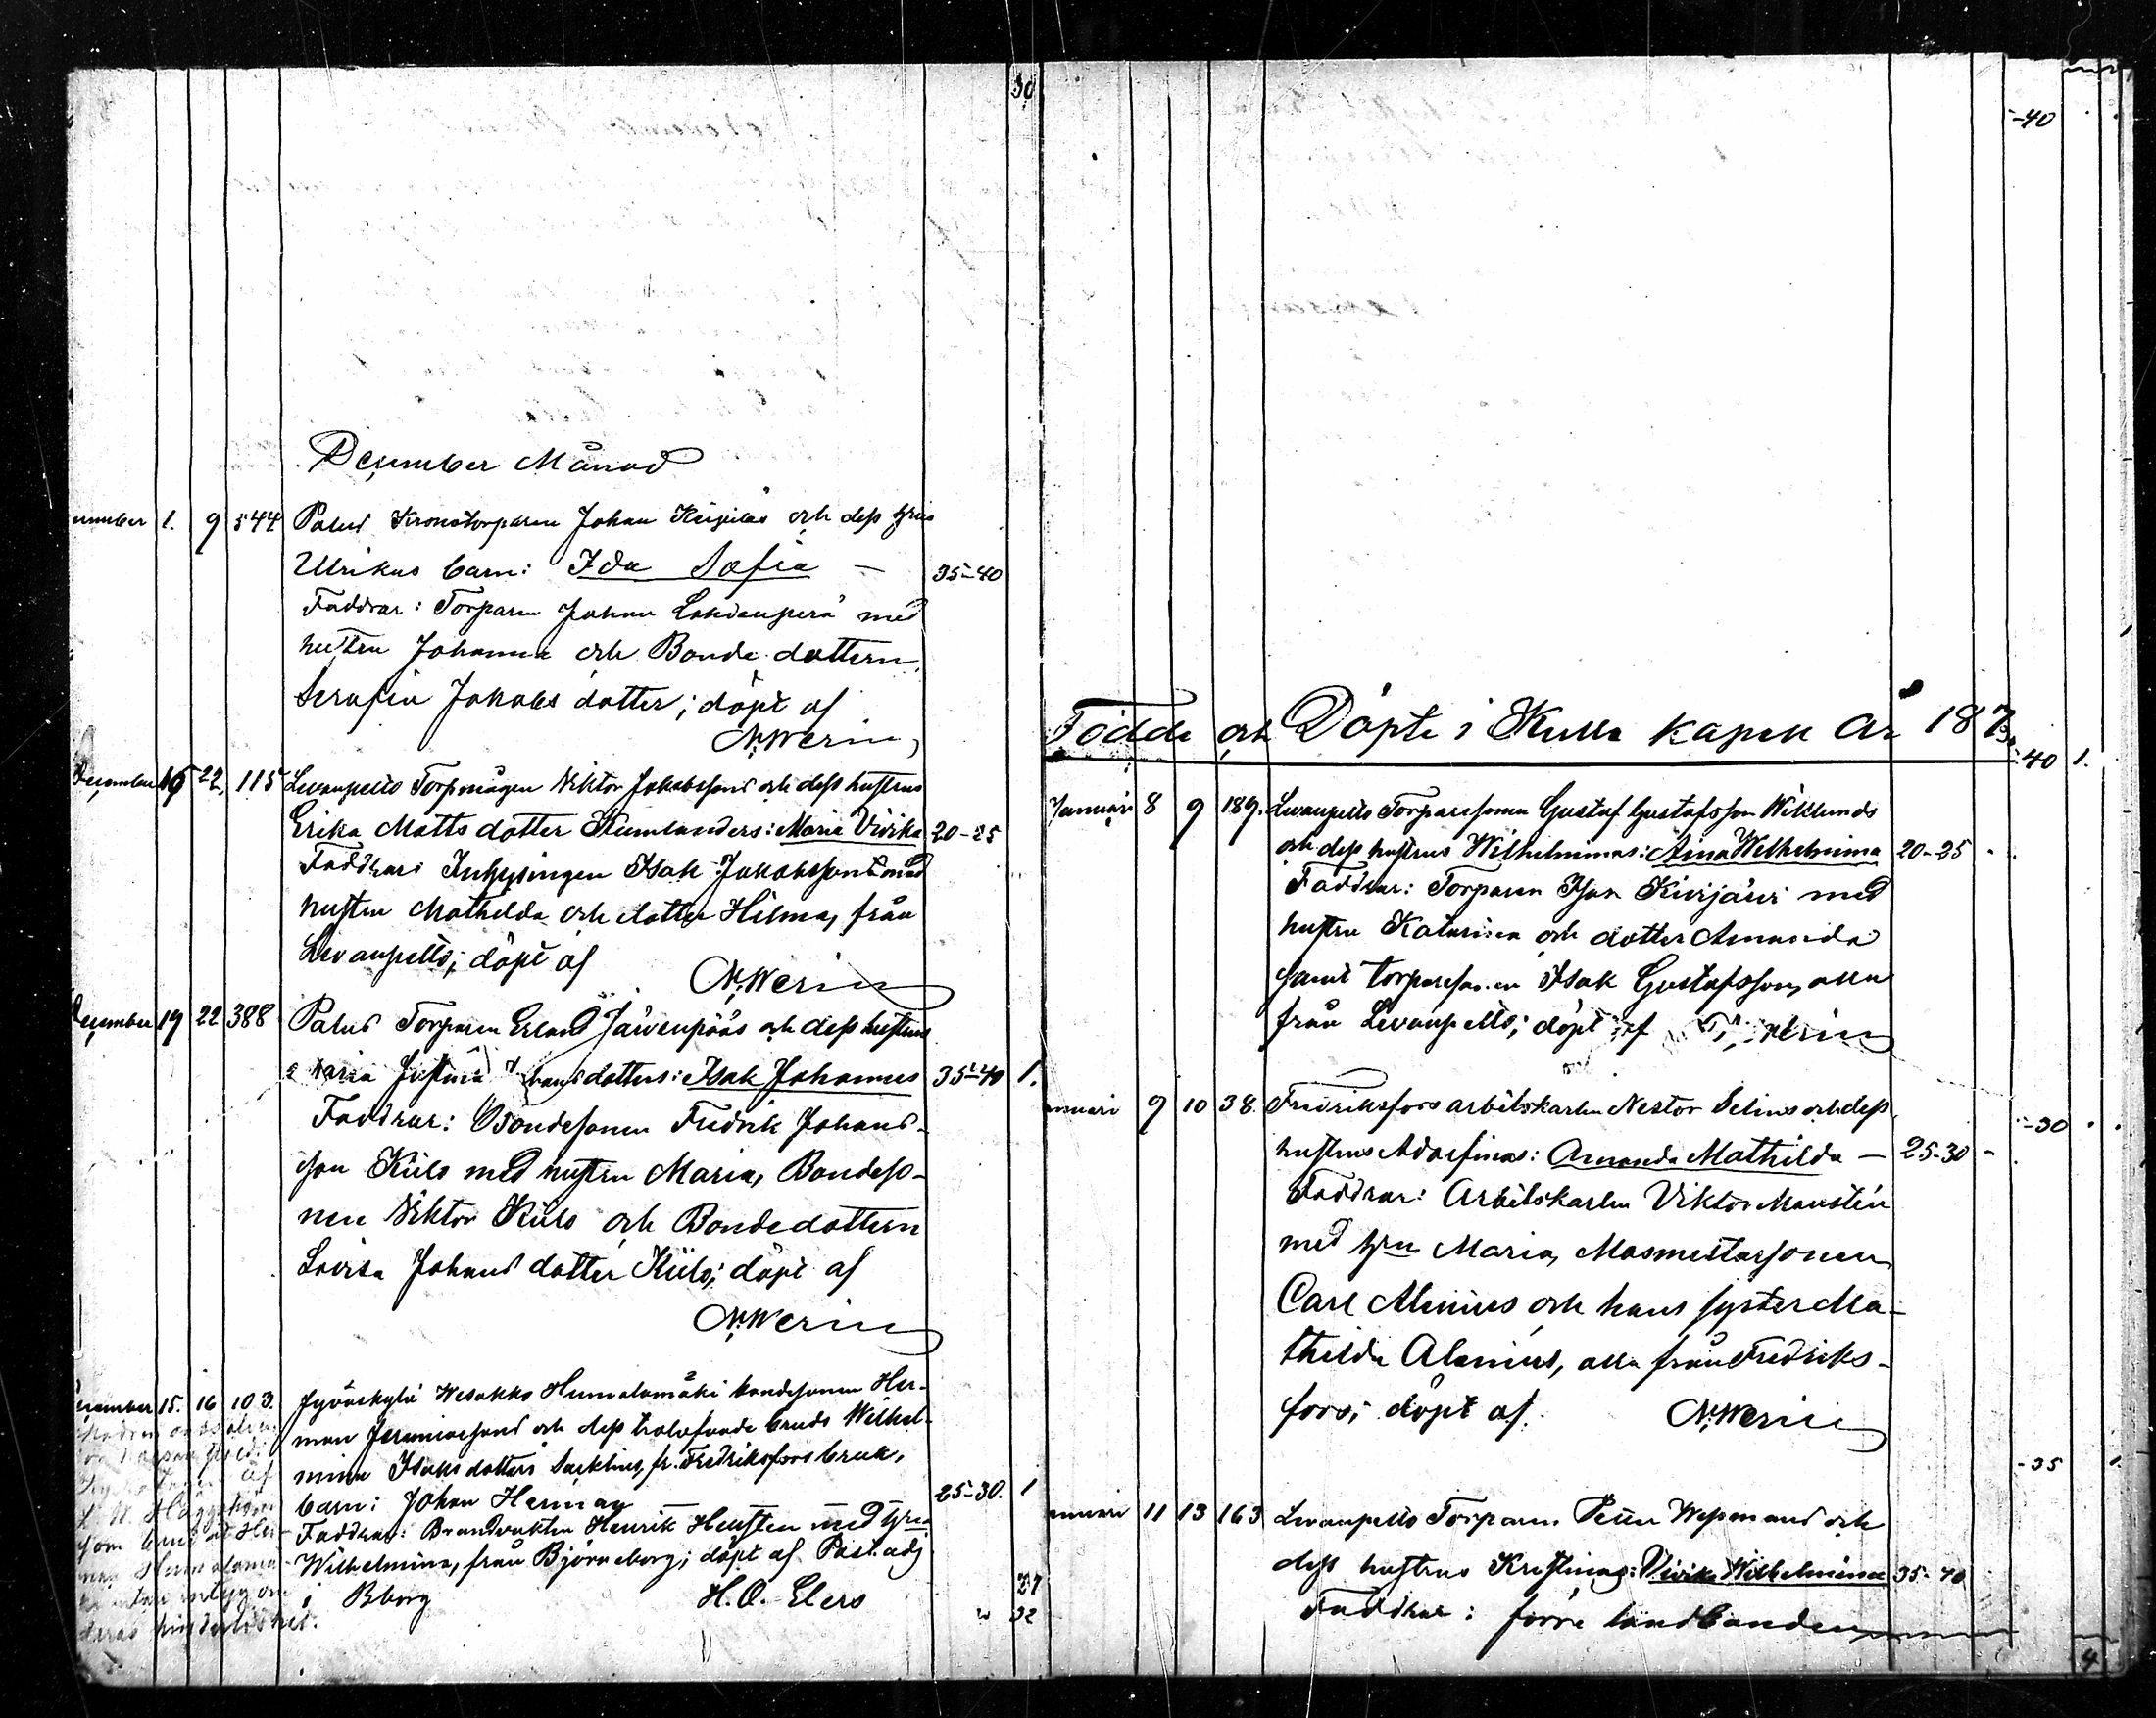 30
December Månad
ember 1. 9 544 Palus Kronotorparen Johan och dess hrus
Ulrikas barn: Ida Sofia — 35-40
Faddrar: Torparen Johan med
hustru Johanna och Bonde dottern
Serafia Jakobs dotter; döpt af
N. Werin
December 16 22. 115 Levanpelto Torpmågen Viktor Jakobssons och dess hustrus
Erika Matts dotter Kumlanders: Maria Vivika 20-25
Faddrar: Inhysingen Isak Jakobsson med
hustru Mathilda och dotter Hilma, från
Levanpelto; döpt af
N. Werin
December 19 22 388 Palus Torparen Erland Järvenpääs och dess hustrus
Maria Justina Johansdotters: Isak Johannes 35-40 1.
Faddrar: Bondesonen Fredrik Johans-
son Kiilo med hustru Maria, Bondeso-
nen Viktor Kiilo och Bondedottern
Lovisa Johans dotter Kiilo; döpt af
N. Werin
ecember 15. 16 103. Jyväskylä Wesakko Humalamäki bondesonen Her-
man Jeremiassons och dess trolofvade bruds Wilhel-
mina Isaks dotters fr. Fredriksfors bruk,
barn: Johan Herman 25-30. 1
Faddrar: Brandvakten Henrik med hru
Wilhelmina, från Björneborg; döpt af Past. adj.
i Bborg H. O. Elers
L. W. Häggström
deras hinderlöshet.
27
32
-40
Födde och Döpte i Kulla kapell År 187
-40 1.
Januari 8 9 189. Levanpelto Torparesonen Gustaf Gustafsson Wiklunds
och dess hustrus Wilhelminas: Aina Wilhelmina 20-25
Faddrar: Torparen Isak Kivijärvi med
hustru Katarina och dotter Amanda
samt torparesonen Isak Gustafsson, alla
från Levanpelto; döpt af N. Werin
anuari 9 10 38. Fredriksfors arbetskarlen Nestor Selins och dess
hustrus Adolfinas: Amanda Mathilda — 25-30 -
-30
Faddrar: Arbetskarlen Viktor Monstén
med hru Maria, Masmestarsonen
Carl Alenius och hans syster Ma-
thilda Alenius, alla från Fredriks-
fors; döpt af. N. Werin
-35 1
anuari 11 13 163 Levanpelto Torparen och
dess hustrus Kristinas: Vivika Wilhelmina 35-40
Faddrar: förre landbonden
4